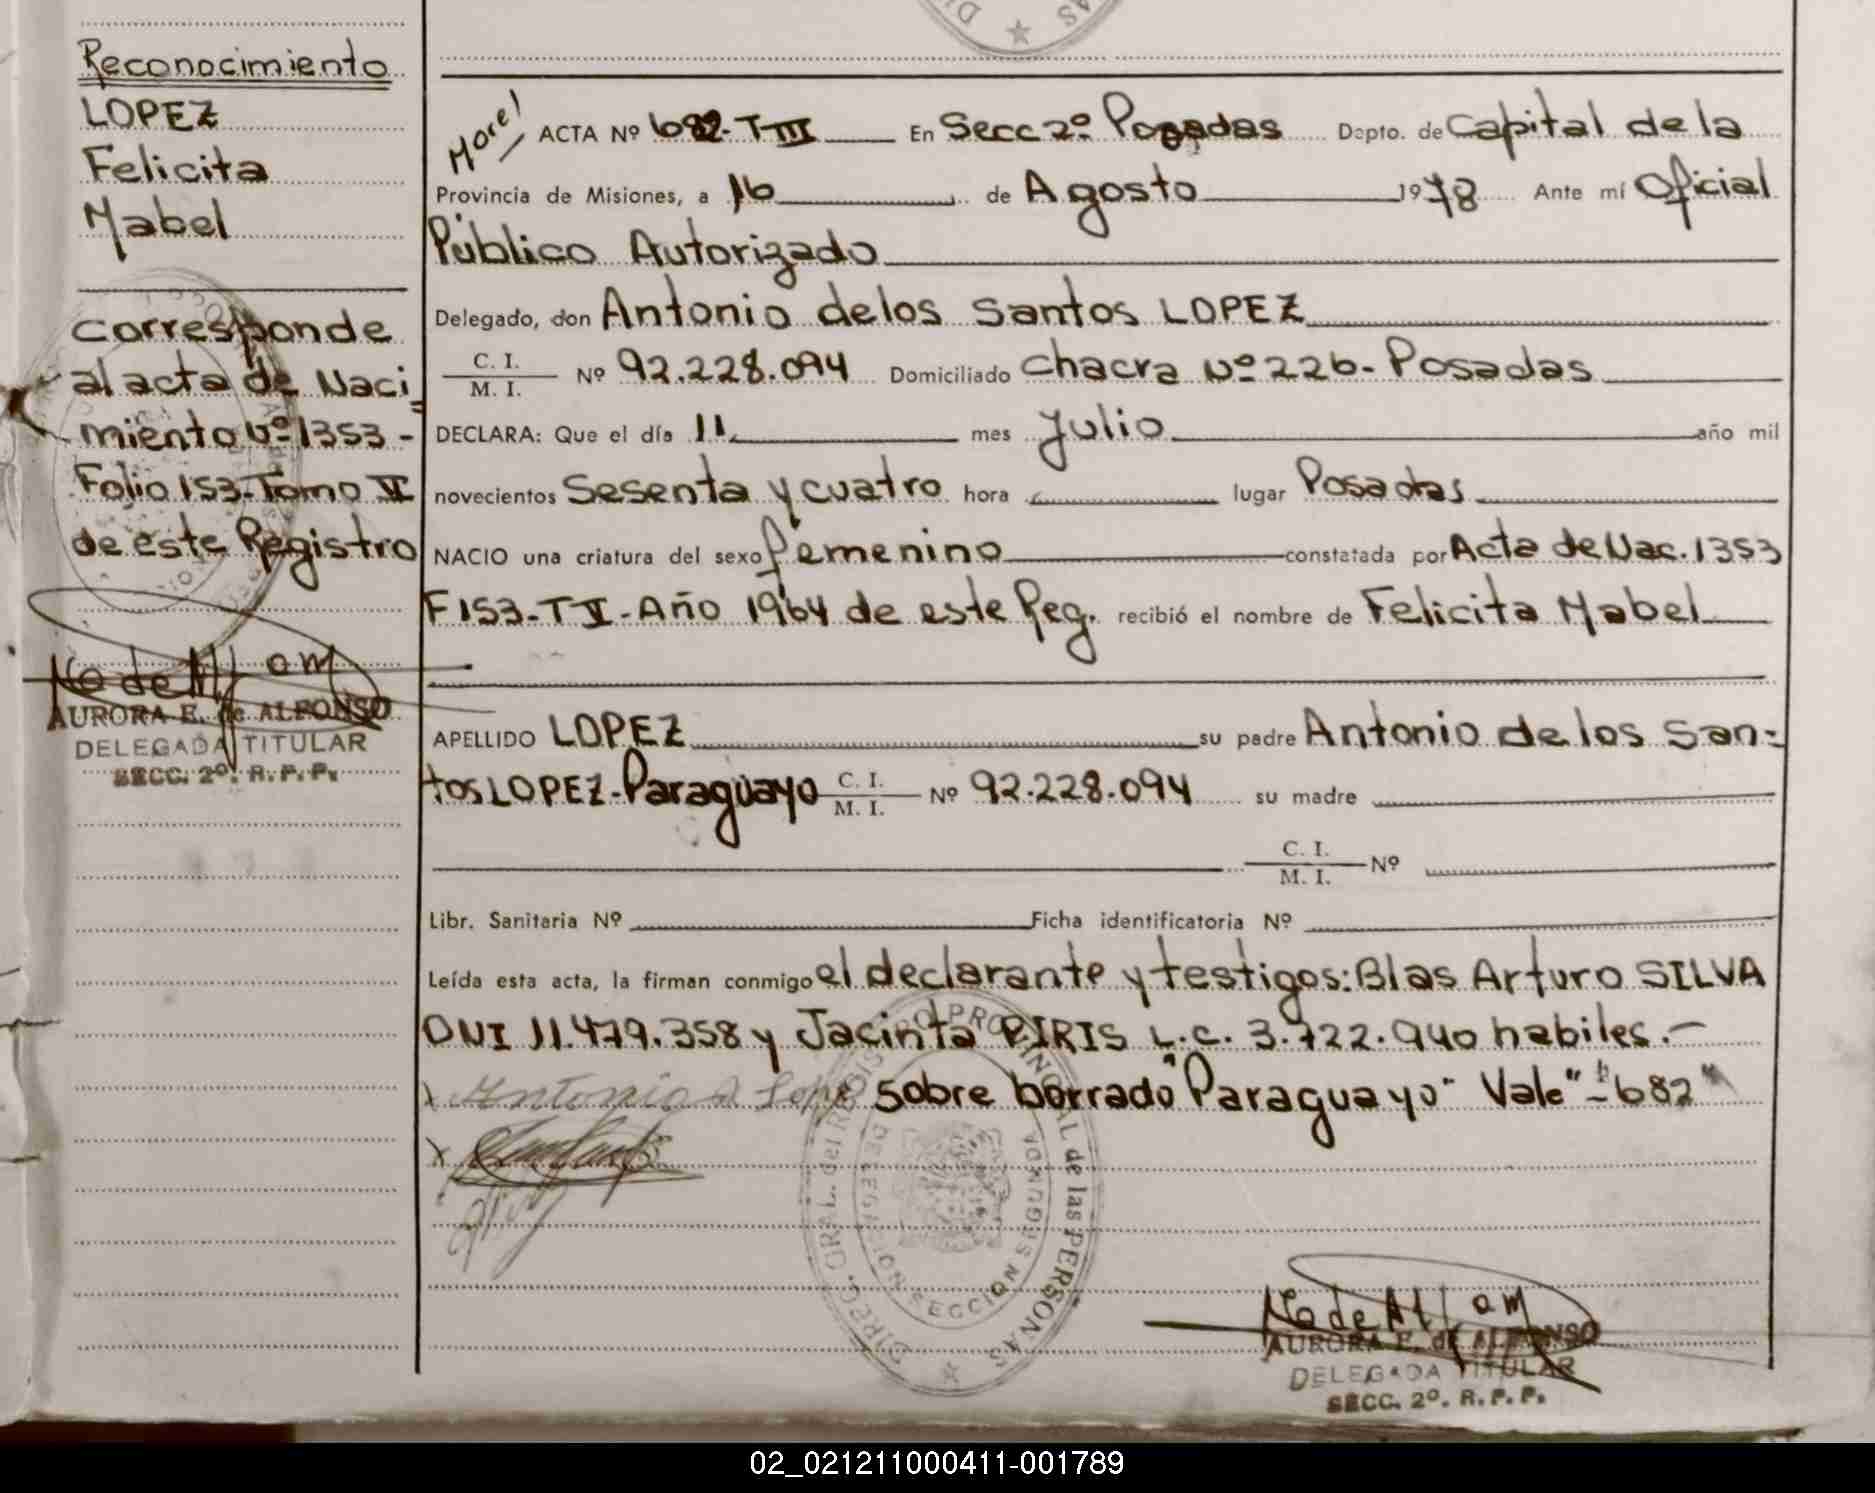 Reconocimiento
LOPEZ
Felicita
Mabel
Corresponde
al acta de Naci
miento Nº 1353 -
Folio 153-Tomo VI
de este Registro
AURORA E. de ALFONSO
DELEGADA TITULAR
SECC. 2º. R. P. P.
More!
ACTA Nº 682-TIII En Secc 2º Posadas Depto. de Capital de la
Provincia de Misiones, a 16 de Agosto 1978 Ante mí Oficial
Público Autorizado
Delegado, don Antonio de los Santos LOPEZ
C. I.
M. I. Nº 92.228.094 Domiciliado Chacra Nº 226- Posadas
DECLARA: Que el día 11 mes Julio año mil
novecientos Sesenta y cuatro hora lugar Posadas
NACIO una criatura del sexo femenino constatada por Acta de Nac. 1353
F153-T -Año 1964 de este Reg. recibió el nombre de Felicita Mabel
APELLIDO LOPEZ su padre Antonio de los San=
tos LOPEZ-Paraguayo C. I.
M. I. Nº 92.228.094 su madre
C. I.
M. I. Nº
Libr. Sanitaria Nº Ficha identificatoria Nº
Leída esta acta, la firman conmigo el declarante y testigos: Blas Arturo SILVA
DNI 11.479.358 y Jacinta PIRIS L.C. 3.722.940 habiles.-
Antonio sobre borrado "Paraguayo" Vale "-682"
DIREC. GRAL. del REGISTRO PROVINCIAL de las PERSONAS
SECCION SEGUNDA
AURORA E. de ALFONSO
DELEGADA TITULAR
SECC. 2º. R. P. P.
02_021211000411-001789